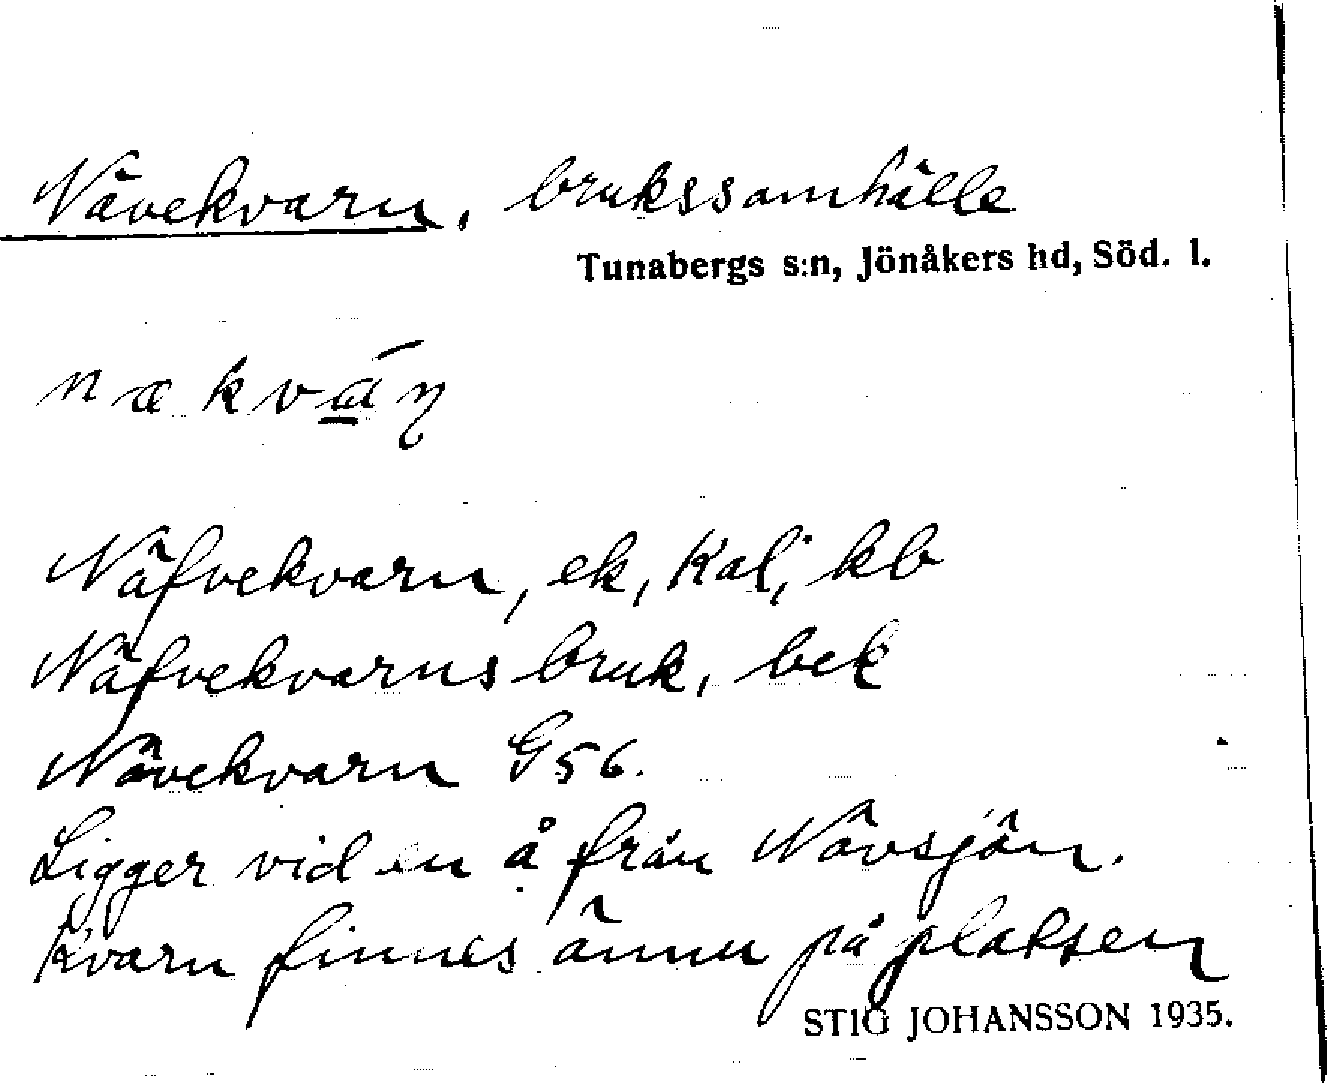 Nävekvarn, brukssamhälle
Tunabergs s:n, Jönåkers hd, Söd. l.
Näfvekvarn, ek, Kal, kb
Näfvekvarns bruk, bek
Nävekvarn G56.
Ligger vid en å från Nävsjön.
Kvarn finnes ännu på platsen
STIG JOHANSSON 1935.